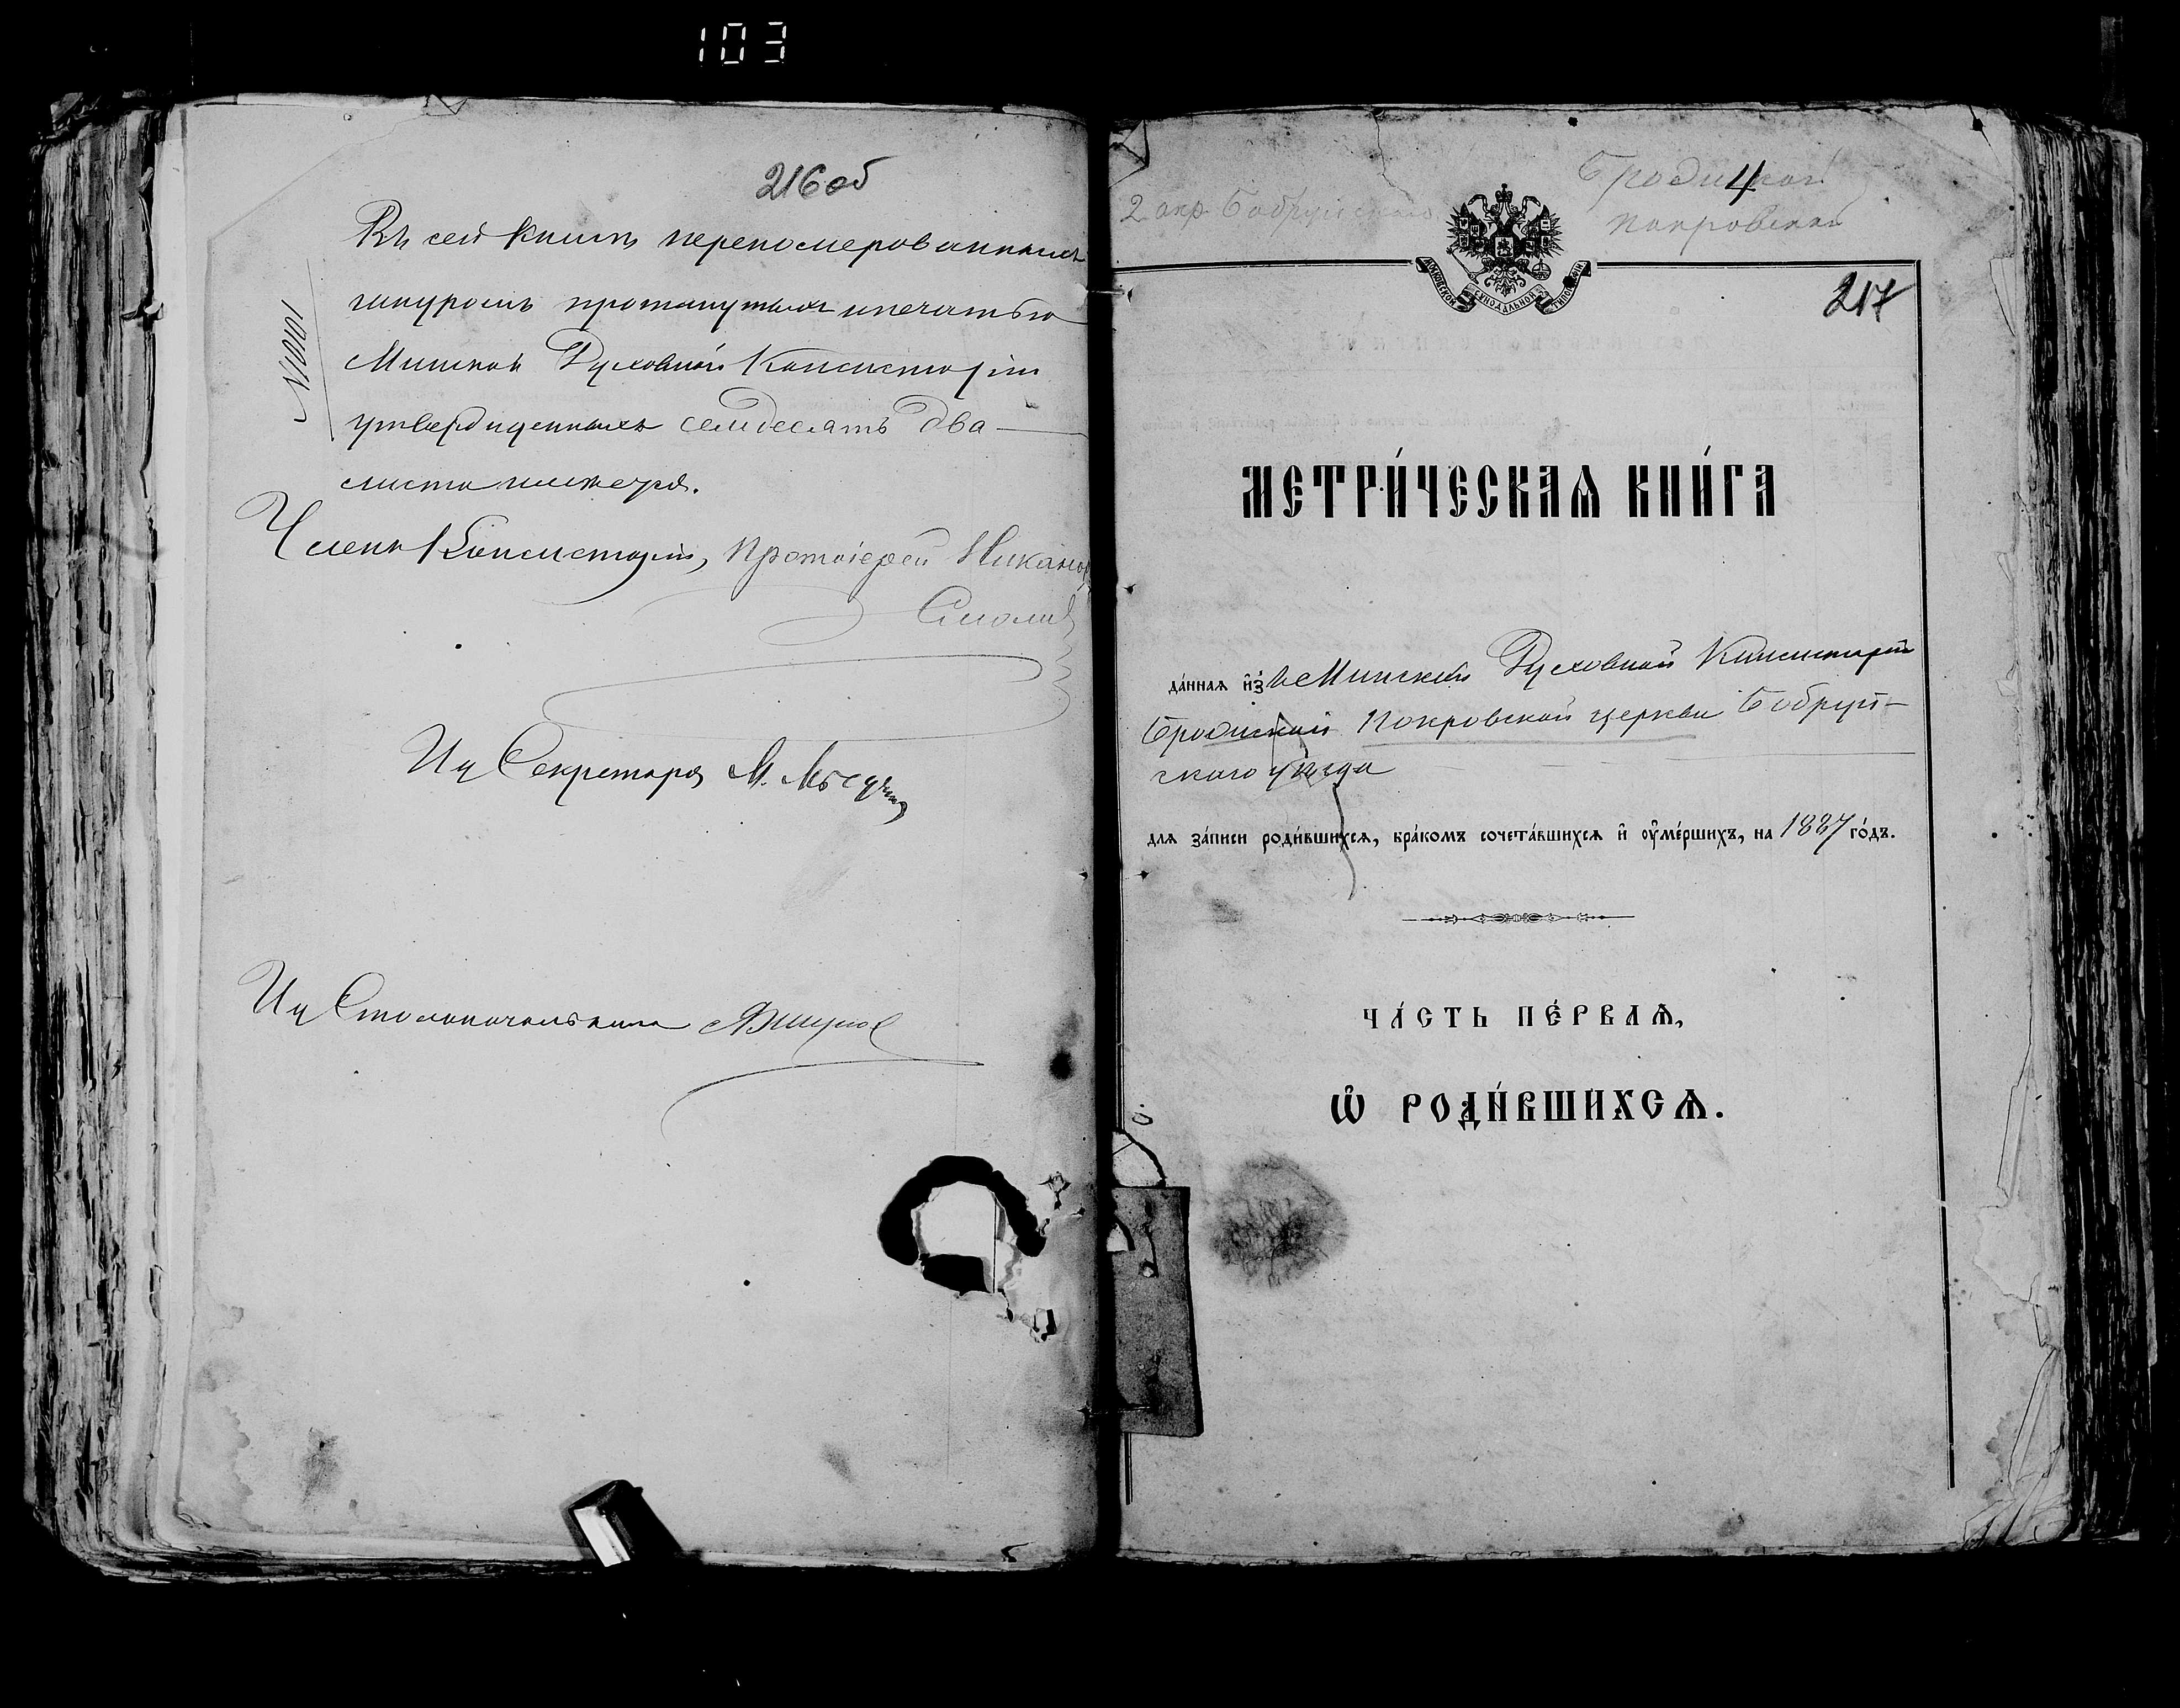 103
216 об
Въ сей книгѣ перенумерованныхъ
шнуромъ протянутыхъ и печатью
Минской Духовной Консисторіи
утвержденныхъ семдесятъ два
листа
№ 10101
Членъ Консисторіи, Протоіерей Никаноръ
Смолич
Ид Секретаря М.
Ид Столоначальника
2 окр. Бобруйскаго
Бродицкой
4
Покровской
МОСКОВСКОЙ СѴНОДАЛЬНОЙ ТИПОГРАФІИ
217
МЕТРИ́ЧЕСКАѦ КНИ́ГА
да́ннаѧ и҆з̾ Минской Духовной Консисторіи
Бродицкой Покровской церкви Бобруй-
скаго уѣзда
длѧ за́писи роди́вшихсѧ, бра́комъ сочета́вшихсѧ и҆ ᲂу҆ме́ршихъ, на 1887 го́дъ.
ЧА́СТЬ ПЕ́РВАѦ,
Ѡ҆ РОДИ́ВШИХСѦ.